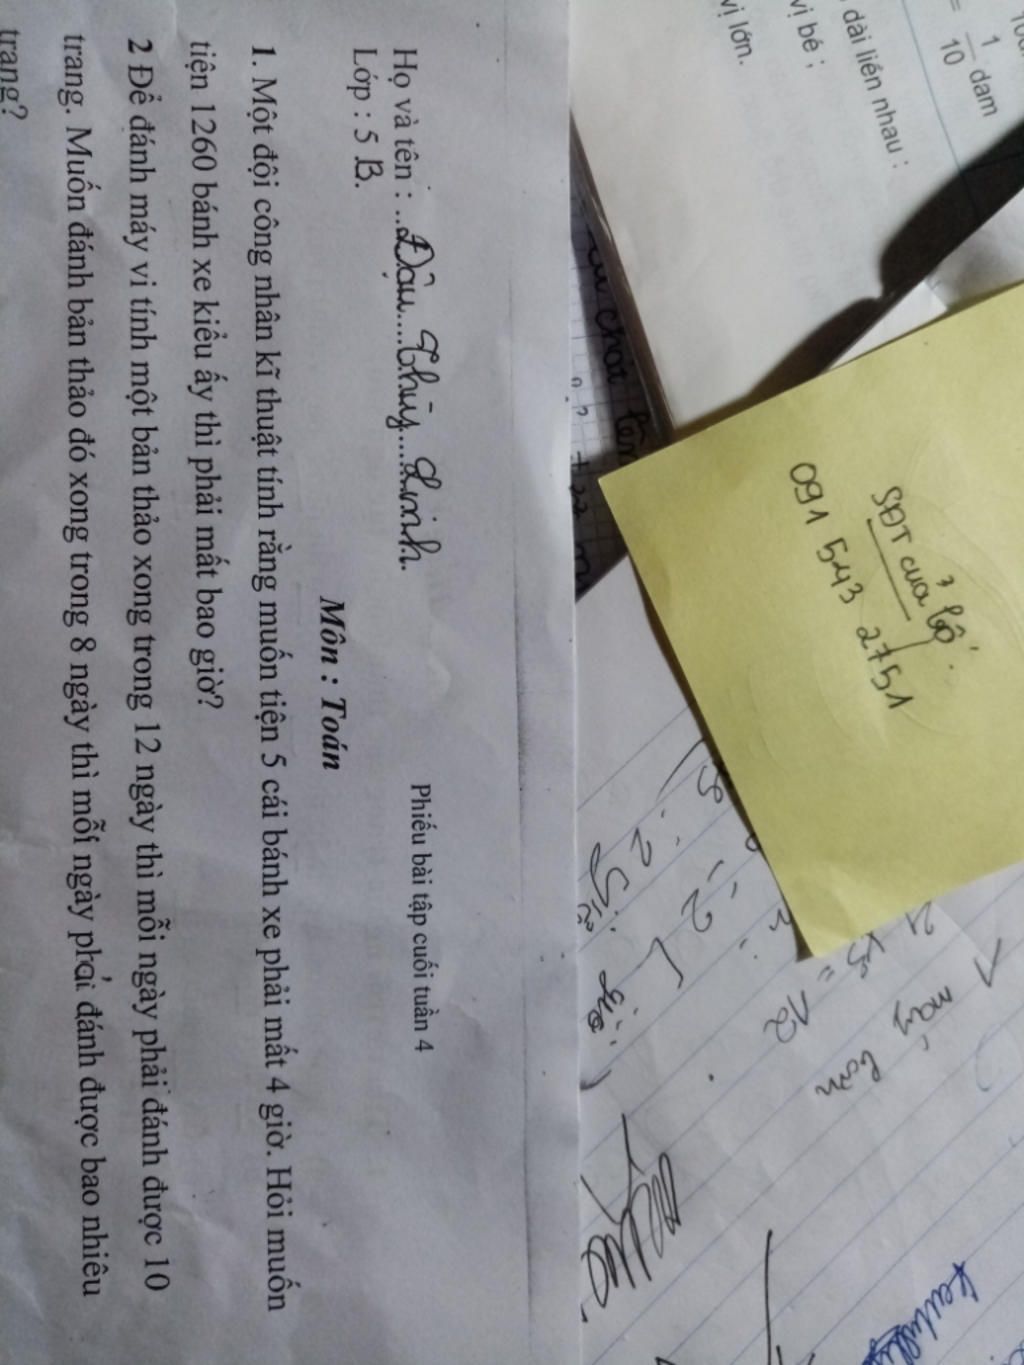 Phiếu bài tập cuối tuần 4
Họ và tên : ..Đậu....Thùy...Linh.
Lớp : 5 B.
Môn : Toán
1. Một đội công nhân kĩ thuật tính rằng muốn tiện 5 cái bánh xe phải mất 4 giờ. Hỏi muốn
tiện 1260 bánh xe kiểu ấy thì phải mất bao giờ?
2 Để đánh máy vi tính một bản thảo xong trong 12 ngày thì mỗi ngày phải đánh được 10
trang. Muốn đánh bản thảo đó xong trong 8 ngày thì mỗi ngày phải đánh được bao nhiêu
trang?
= 1/10 dam
dài liền nhau :
vị bé ;
vị lớn.
SĐT của bố
091 543 2751
máy bơm
= 12